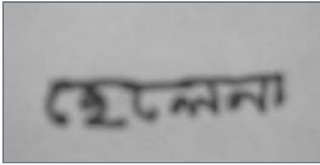 হেলেনা